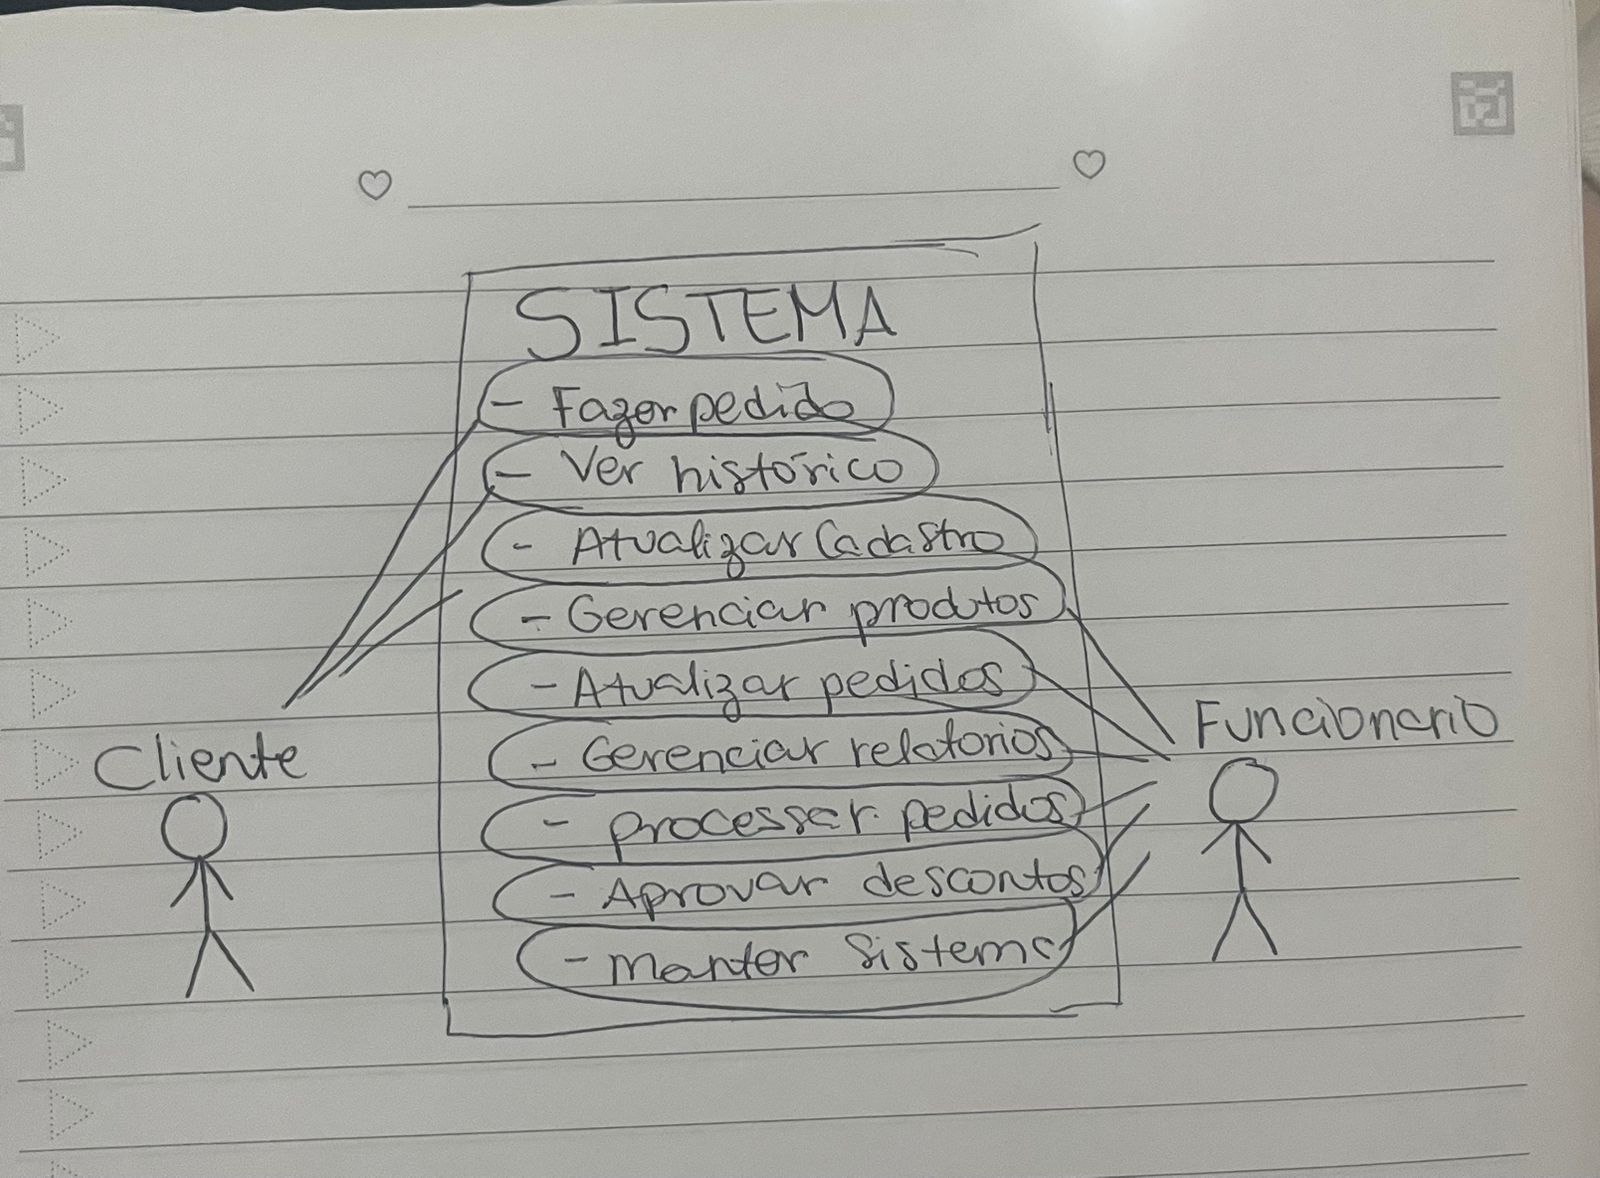 SISTEMA
- Fazer pedido
- Ver histórico
- Atualizar Cadastro
- Gerenciar produtos
- Atualizar pedidos
- Gerenciar relatorios
- processar pedidos
- Aprovar descontos
- Manter Sistema
Cliente
Funcionario